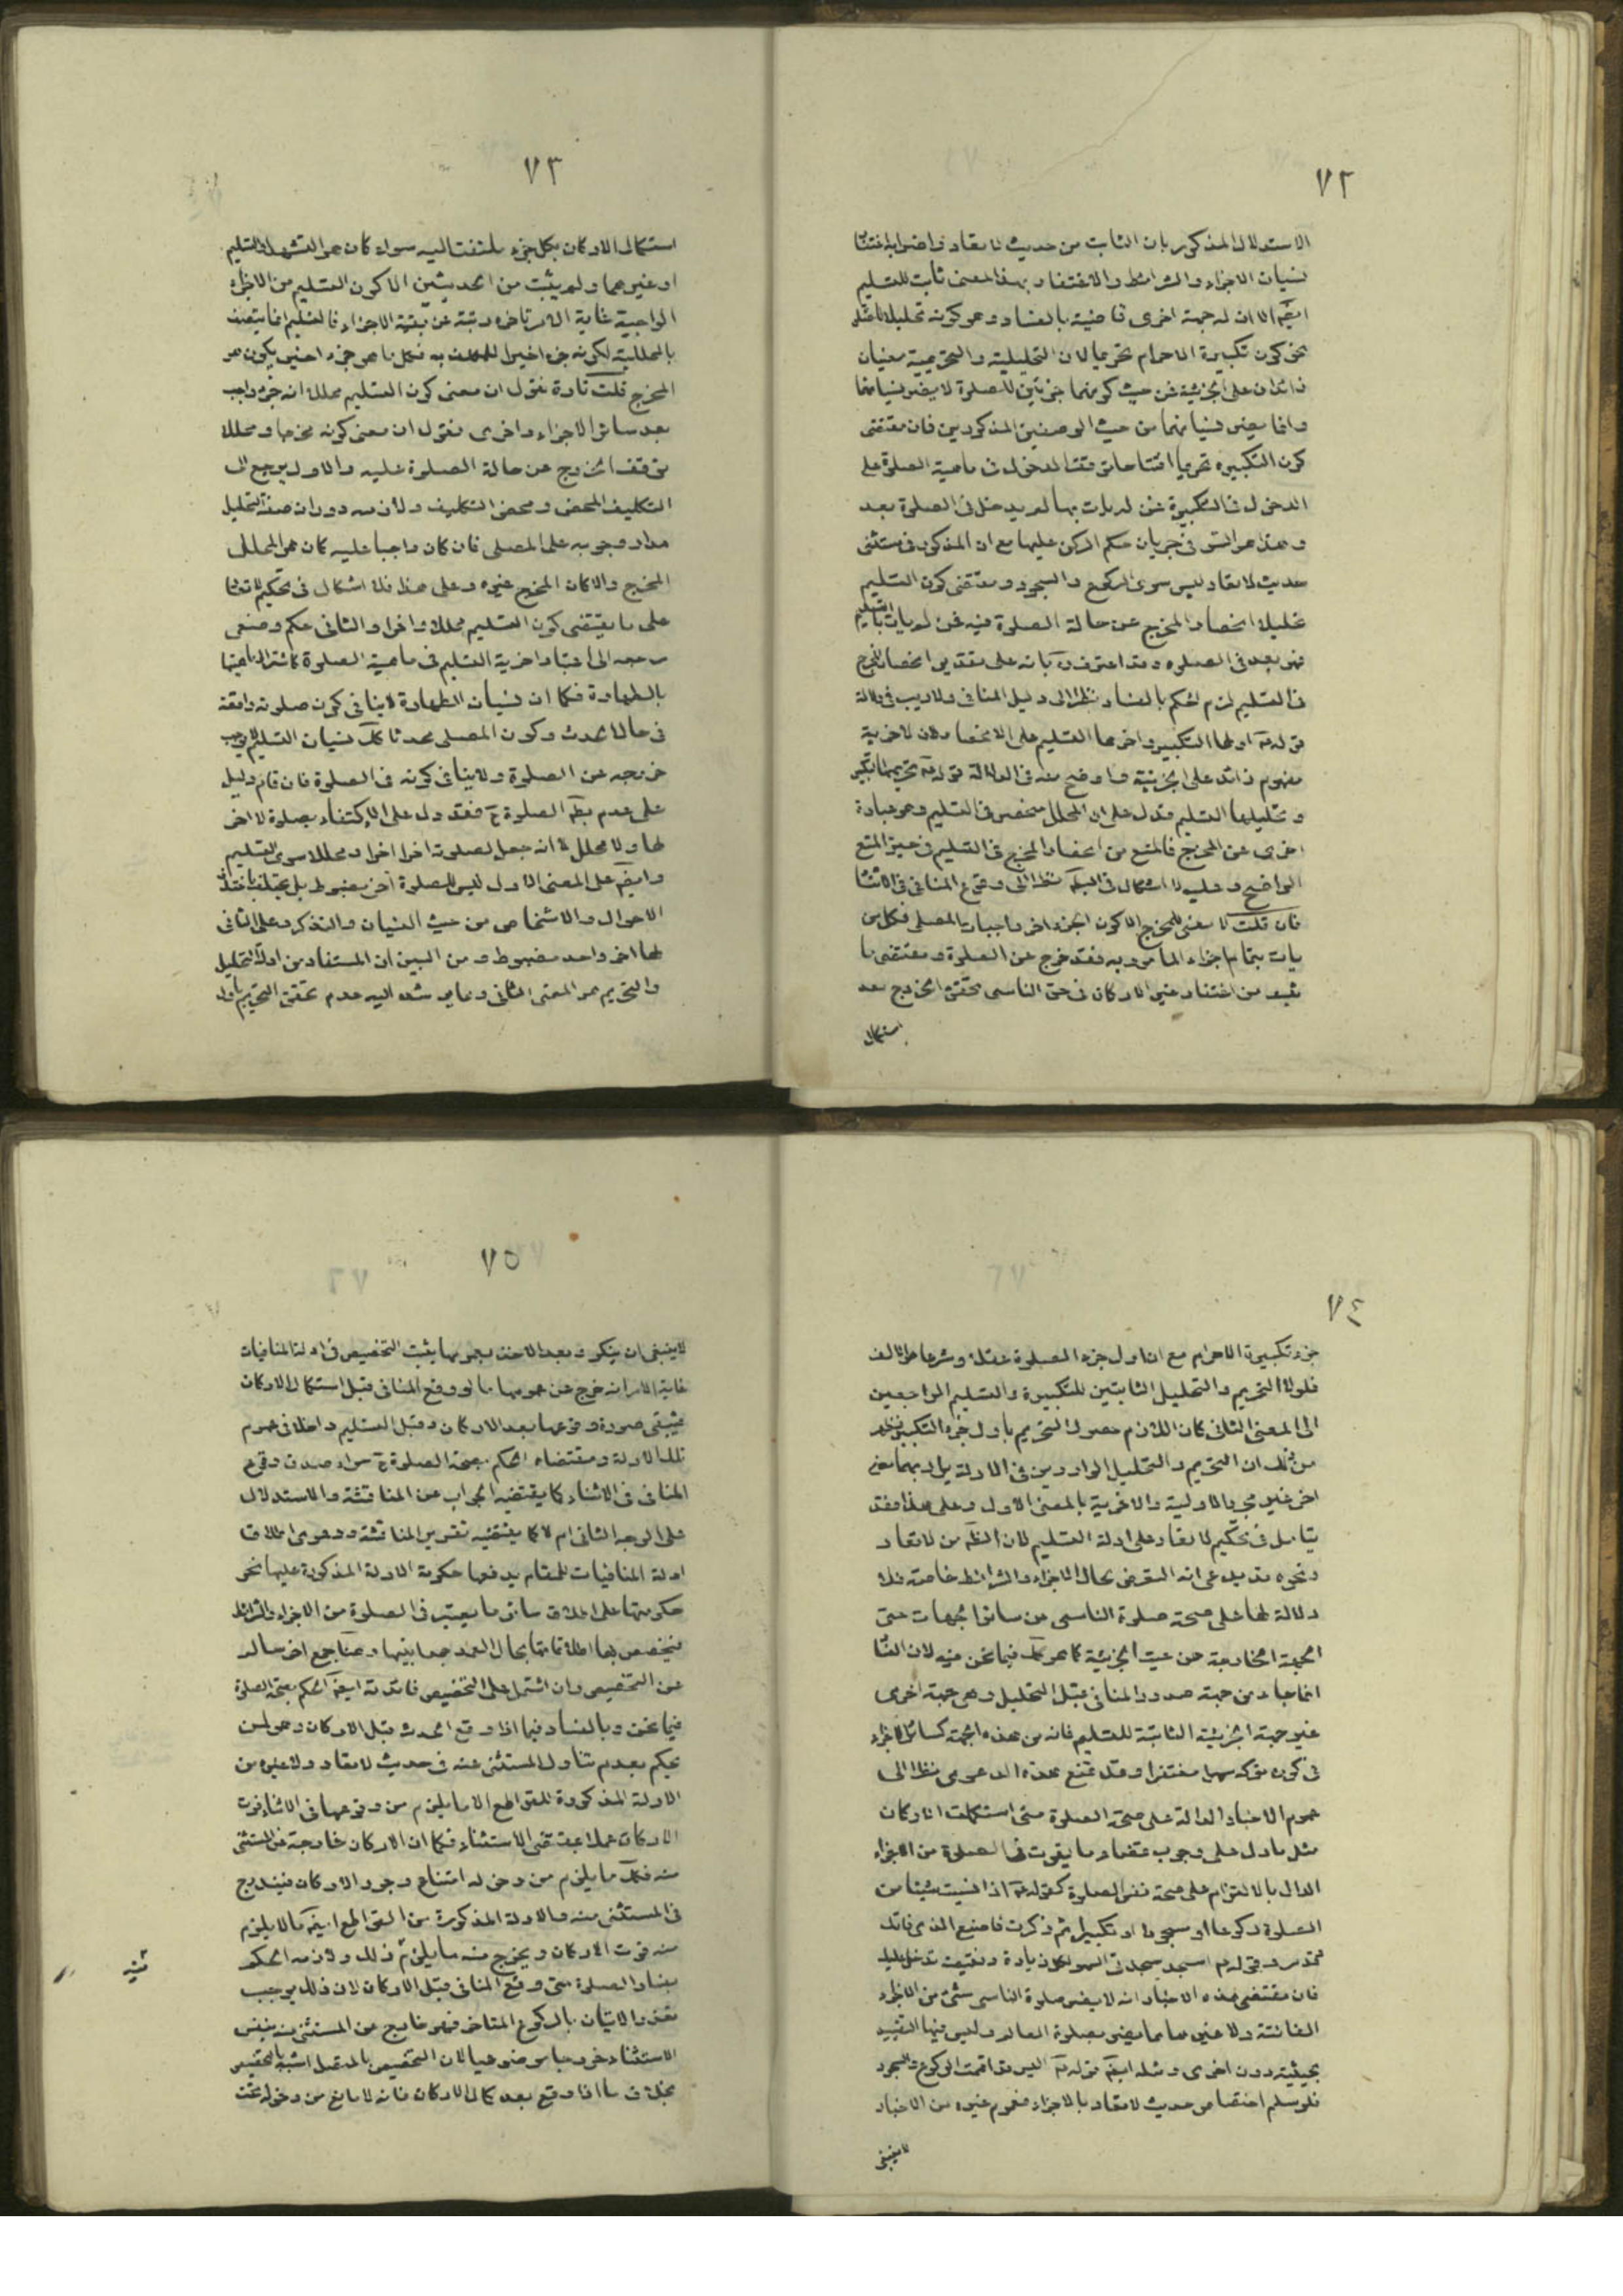 ٧٢
الاستدلال المذكور بان الثابت من حديث لا تعاد
نسيان الاجزاء والشرائط والاغتفار بهذا المعنى ثابت للتسليم
ايضا الا ان له جهة اخرى قاضية بالفساد وهو كونه تحليلا
نحو كون تكبيرة الاحرام تحريما لان التحليلية والتحريمية معنيان
زائدان على الجزئية فمن حيث كونهما جزئين للصلوة لا يضر نسيانهما
وانما يضر نسيانهما من حيث الوصفين المذكورين فان مقتضى
كون التكبيرة تحريما افتتاحا توقف الدخول في ماهية الصلوة على
الدخول في التكبيرة فمن لم يات بها لم يدخل في الصلوة بعد
وهذا هو السر في جريان حكم الركن عليها مع ان المذكور في مستثنى
حديث لا تعاد ليس سوى الركوع والسجود ومقتضى كون التسليم
تحليلا انحصار المخرج عن حالة الصلوة فيه فمن لم يات بالتسليم
فهو بعد في الصلوة وقد اعترف بانه على تقدير انحصار المخرج
في التسليم لزم الحكم بالفساد نظرا الى دليل المنافي ولا ريب في دلالة
قوله اولها التكبير واخرها التسليم على الانحصار لان الاخرية
مفهوم زائد على الجزئية واوضح منه في الدلالة قوله تحريمها التكبير
وتحليلها التسليم فدل على ان المحلل منحصر في التسليم وهو عبارة
اخرى عن المخرج فالمنع من انحصار المخرج في التسليم في حيز المنع
الواضح وعليه لا اشكال في نظرا الى وقوع المنافي في الاثناء
فان قلت لا معنى للمخرج الا كون الجزء اخر واجبات المصلي فكل من
يات بتمام اجزاء المامور به فقد خرج عن الصلوة ومقتضى ما
ثبت من اغتفار غير الاركان في حق الناسي تحقق الخروج بعد
استكمال
٧٣
استكمال الاركان بكل جزء يلتفت اليه سواء كان هو التشهد او التسليم
او غيرهما ولم يثبت من الحديثين الا كون التسليم من الاجزاء
الواجبة غاية الامر تاخره رتبة عن بقية الاجزاء فالتسليم انما يتصف
بالمحللية لكونه جزء اخيرا للمكلف به فكل ما هو جزء اخير يكون هو
المخرج قلت تارة نقول ان معنى كون التسليم محللا انه جزء واجب
بعد سائر الاجزاء واخرى نقول ان معنى كونه مخرجا ومحللا
توقف الخروج عن حالة الصلوة عليه والاول يرجع الى
التكليف المحض ومحض التكليف ولازمه دوران صفة التحليل
مدار وجوبه على المصلي فان كان واجبا عليه كان هو المحلل
المخرج والا كان المخرج غيره وعلى هذا فلا اشكال في تحكيم لا تعاد
على ما يقتضي كون التسليم محللا واخرا والثاني حكم وضعي
مرجعه الى اعتبار اخرية التسليم في ماهية الصلوة كاشتراط ماهيتها
بالطهارة فكما ان نسيان الطهارة لا ينافي كون صلوته واقعة
في حال الحدث وكون المصلي محدثا كك نسيان التسليم لا يوجب
خروجه عن الصلوة ولا ينافي كونه في الصلوة فان قام دليل
على عدم الصلوة ح فقد دل على الاكتفاء بصلوة لا اخر
لها ولا محلل لا انه جعل لصلوته اخرا ومحللا سوى التسليم
وايضا على المعنى الاول ليس للصلوة اخر مضبوط بل يختلف باختلاف
الاحوال والاشخاص من حيث النسيان والتذكر وعلى الثاني
لها اخر واحد مضبوط ومن المبين ان المستفاد من ادلة التحليل
والتحريم هو المعنى الثاني ومما يرشد اليه عدم تحقق التحريم باول
٧٤
جزء تكبيرة الاحرام مع ان اول جزء الصلوة عقلا وشرعا هو الالف
فلولا التحريم والتحليل الثابتين للتكبيرة والتسليم الراجعين
الى المعنى الثاني كان اللازم حصول التحريم باول جزء التكبير فظهر
من ذلك ان التحريم والتحليل الواردين في الادلة يراد بهما معنى
اخر غير مجرد الاولية والاخرية بالمعنى الاول وعلى هذا فقد
يتامل في تحكيم لا تعاد على ادلة التسليم لان الظ من لا تعاد
ونحوه انه التعرض بحال الاجزاء والشرائط خاصة فلا
دلالة لها على صحة صلوة الناسي من سائر الجهات حتى
الجهة الخارجة عن حيث الجزئية كما هو كك فيما نحن فيه لان الفساد
انما جاء من جهة صدور المنافي قبل التحليل وهي جهة اخرى
غير جهة الجزئية الثابتة للتسليم فانه من هذه الجهة كسائر الاجزاء
في كون تركه سهوا مغتفرا وقد تمنع هذه الدعوى نظرا الى
عموم الاخبار الدالة على صحة الصلوة متى استكملت الاركان
مثل ما دل على وجوب قضاء ما يفوت في الصلوة من الاجزاء
الدال بالالتزام على صحة نفس الصلوة كقوله اذا نسيت شيئا من
الصلوة ركوعا او سجودا او تكبيرا ثم ذكرت فاصنع الذي فاتك
وقوله اسجد سجدتي السهو لكل زيادة ونقيصة تدخل عليك
فان مقتضى هذه الاخبار انه لا يضر صلوة الناسي شيء من الاجزاء
الفائتة ولا غيرها مما يضر بصلوة العامد وليس فيها التقييد
بحيثية دون اخرى ومثله ايضا قوله اليس قد اتممت الركوع والسجود
فلو سلم اختصاص حديث لا تعاد بالاجزاء فعموم غيره من الاخبار
لا ينبغي
٧٥
لا ينبغي ان ينكر وبعد الاخذ بعمومها يثبت التخصيص في ادلة المنافيات
غاية الامر انه خرج عن عمومها ما لو وقع المنافي قبل استكمال الاركان
فيبقى صورة وقوعها بعد الاركان وقبل التسليم داخلا في عموم
تلك الادلة ومقتضاه الحكم بصحة الصلوة ح سواء صدق وقوع
المنافي في الاثناء كما يقتضيه الجواب عن المناقشة والاستدلال
على الوجه الثاني ام لا كما يقتضيه تقرير المناقشة ودعوى اطلاق
ادلة المنافيات للمقام يدفعها حكومة الادلة المذكورة عليها نحو
حكومتها على اطلاق سائر ما يعتبر في الصلوة من الاجزاء والشرائط
فيخصص بها اطلاقاتها بحال العمد جمعا بينها وهنا جمع اخر سالم
عن التخصيص وان اشتمل على التخصيص فائدته ايضا الحكم بصحة الصلوة
فيما نحن وبالفساد فيما اذا وقع الحدث قبل الاركان وهو ان
يحكم بعدم تناول المستثنى عنه في حديث لا تعاد ولا غيره من
الادلة المذكورة للقواطع الا ما يلزم من وقوعها في الاثناء فوت
الاركان عملا بمقتضى الاستثناء فكما ان الاركان خارجة عن المستثنى
منه فكك ما يلزم من دخوله امتناع وجود الاركان فيندرج
في المستثنى منه والادلة المذكورة من القواطع ايضا ما لا يلزم
منه فوت الاركان ويخرج منه ما يلزم ذلك ولازمه الحكم
بفساد الصلوة متى وقع المنافي قبل الاركان لان ذلك يوجب
تعذر الاتيان بالركوع المتاخر فهو خارج عن المستثنى منه بنفس
الاستثناء خروجا موضوعيا لان التخصيص بالمتصل اشبه بالتخصص
بخلاف ما اذا وقع بعد كمال الاركان فانه لا مانع من دخوله تحت